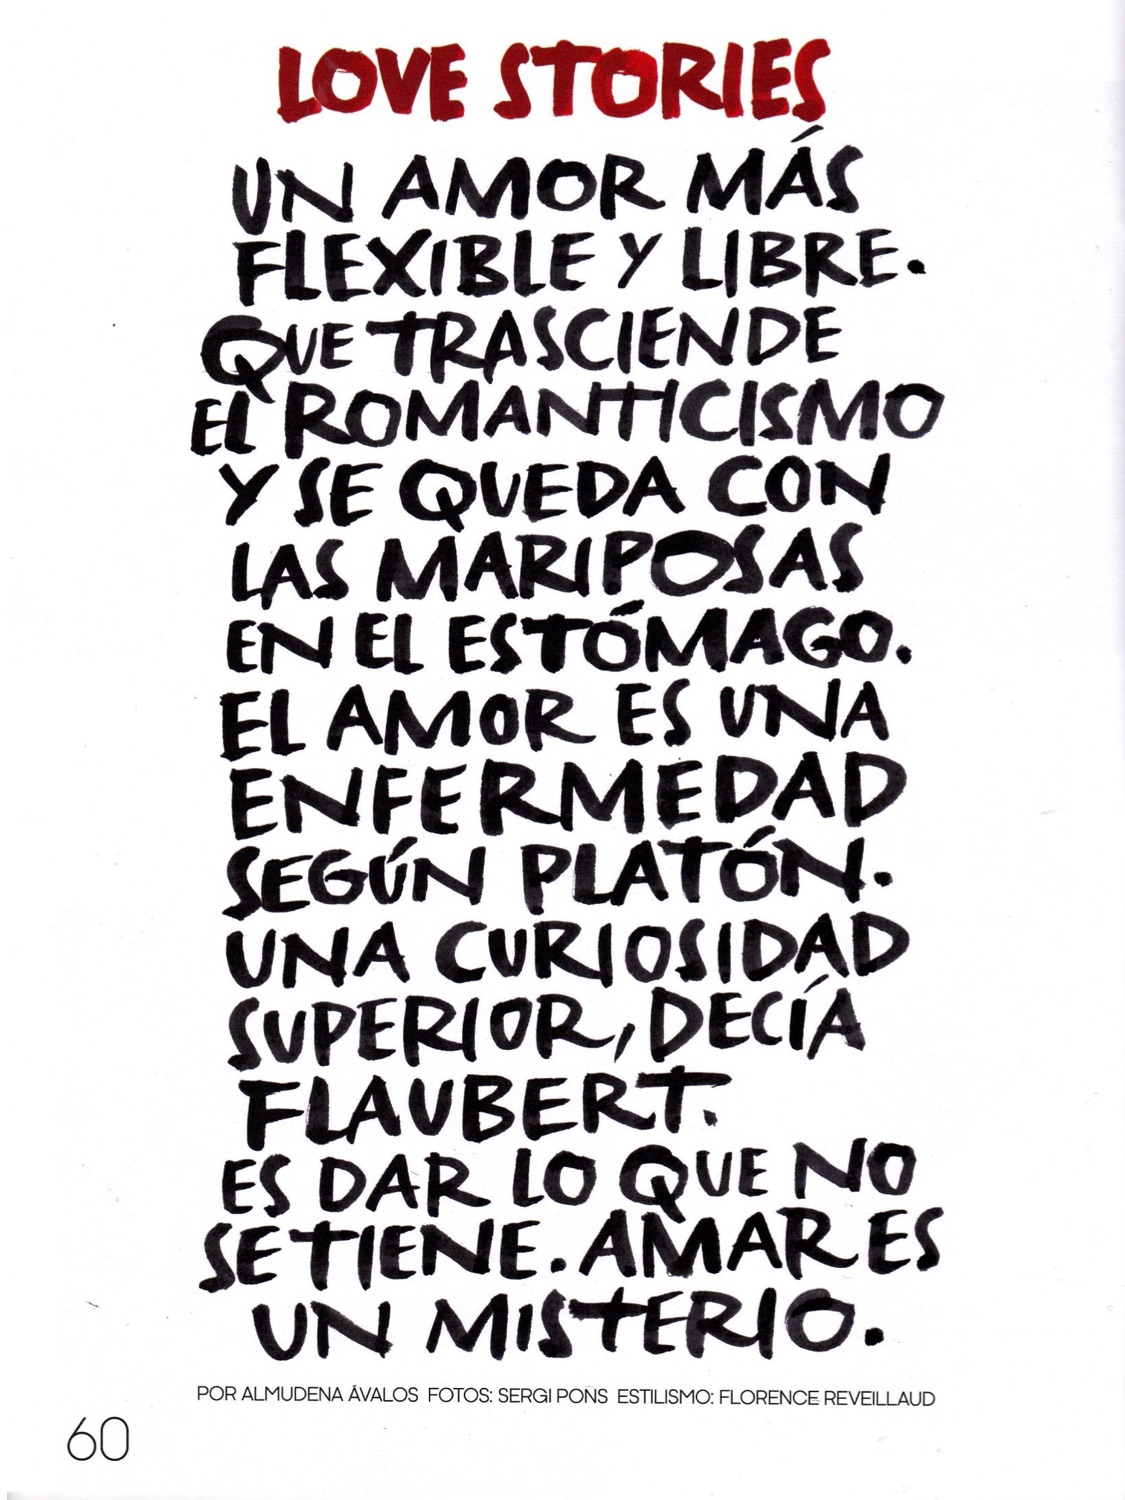 LOVE STORIES
UN AMOR MÁS
FLEXIBLE Y LIBRE.
QUE TRASCIENDE
EL ROMANTICISMO
Y SE QUEDA CON
LAS MARIPOSAS
EN EL ESTÓMAGO.
EL AMOR ES UNA
ENFERMEDAD
SEGÚN PLATÓN.
UNA CURIOSIDAD
SUPERIOR, DECÍA
FLAUBERT.
ES DAR LO QUE NO
SE TIENE. AMAR ES
UN MISTERIO.
POR ALMUDENA ÁVALOS FOTOS: SERGI PONS ESTILISMO: FLORENCE REVEILLAUD
60